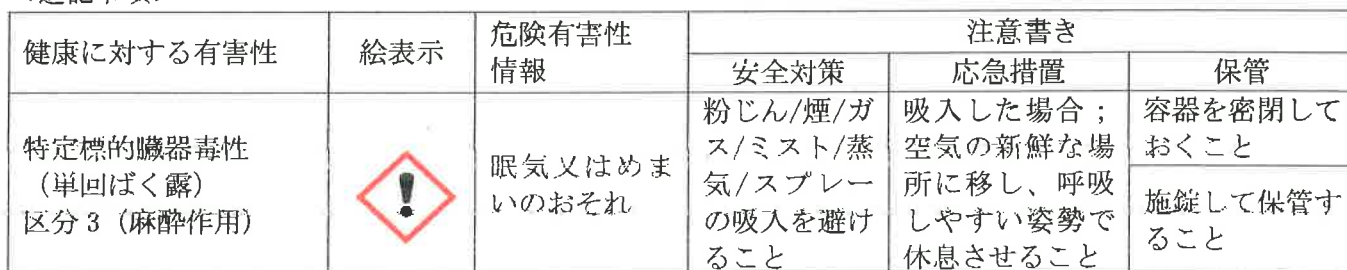 健康に対する有害性
絵表示
危険有害性
情報
注意書き
安全対策
応急措置
保管
特定標的臓器毒性
（単回ばく露）
区分3（麻酔作用）
眠気又はめま
いのおそれ
粉じん/煙/ガ
ス/ミスト/蒸
気/スプレー
の吸入を避け
ること
吸入した場合；
空気の新鮮な場
所に移し、呼吸
しやすい姿勢で
休息させること
容器を密閉して
おくこと
施錠して保管す
ること